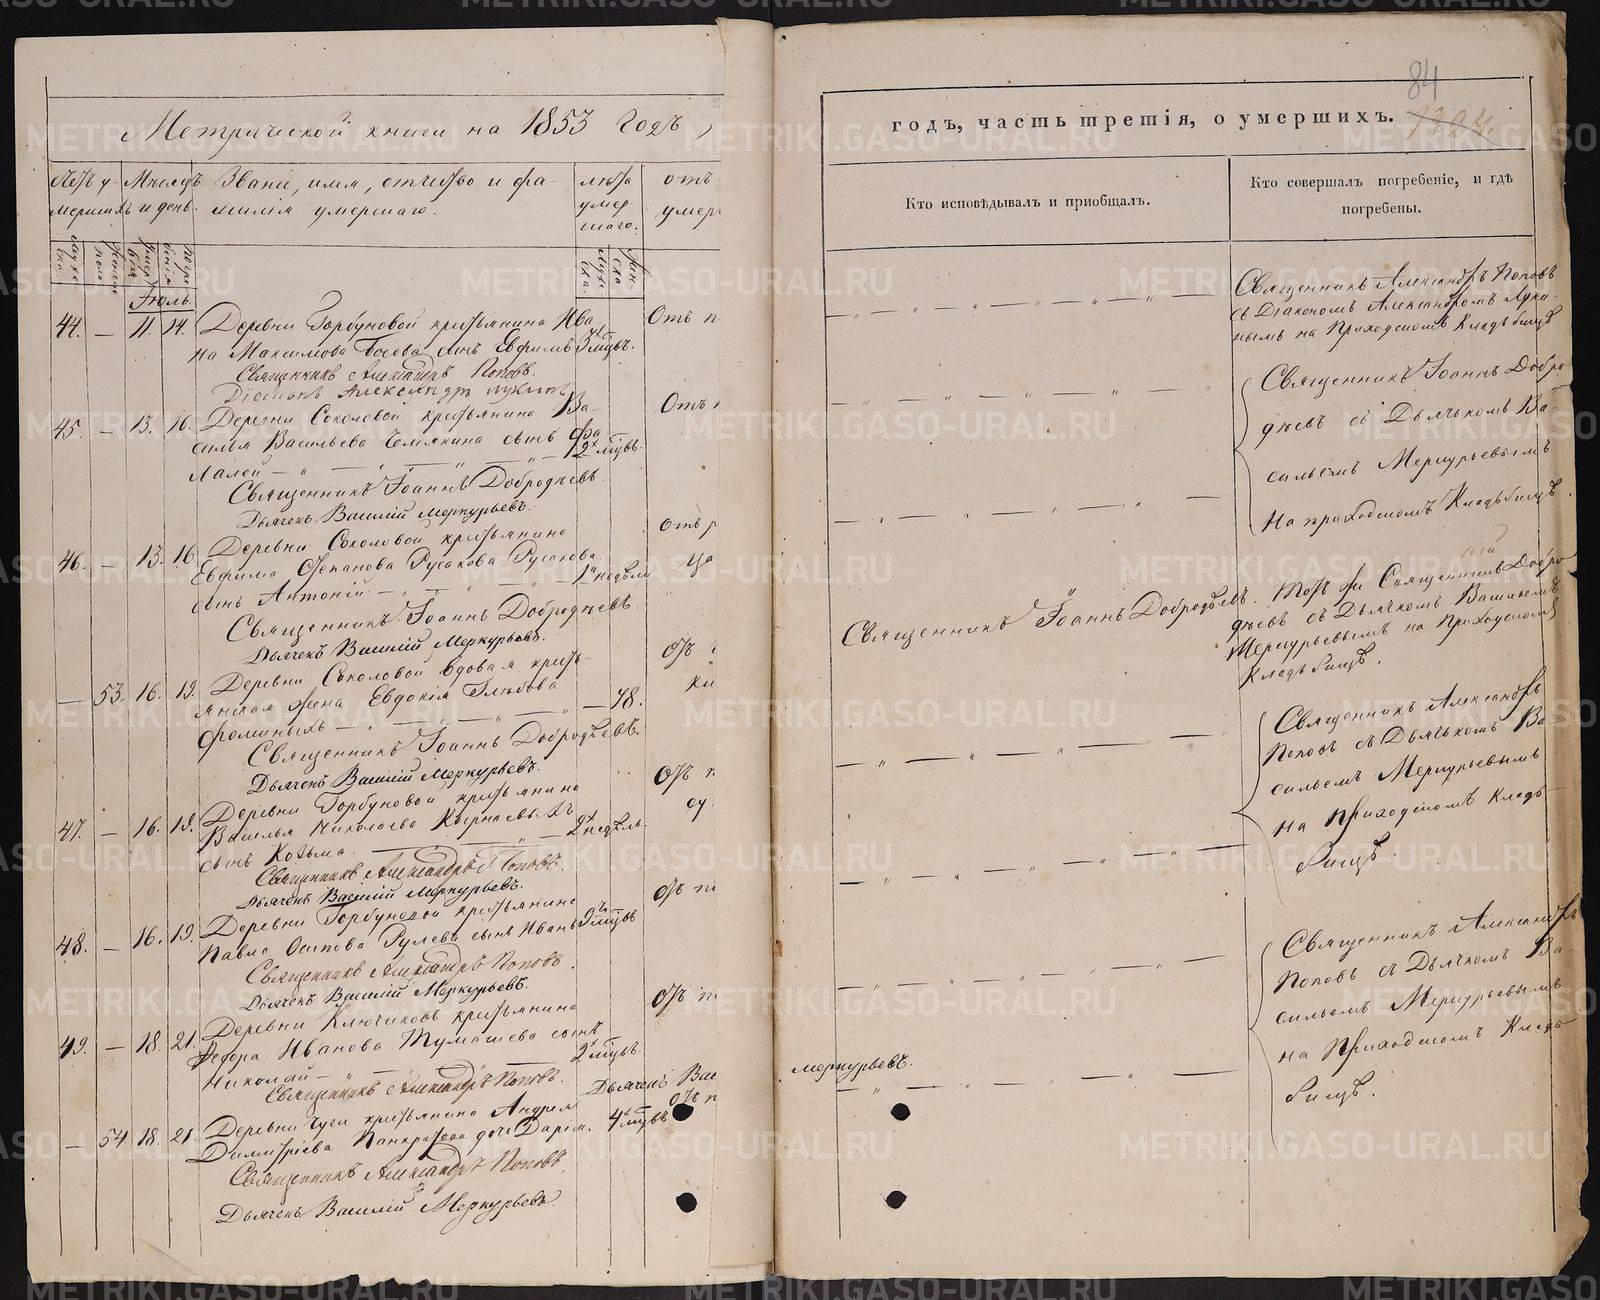 Метрической книги на 1853 годъ,
Мѣсяцъ и день.
Званіе, имя, отчество и фамилія умершаго.
лѣта умершаго.
отъ
умер
Іюль.
44. — 11. 14. Деревни Горбуновой крестьянина Ива-
на Максимова сынъ Ефимъ 3 мѣсяц. Отъ п
Священникъ Александръ Поповъ.
Діаконъ Александръ Лукинъ
45. — 13. 16. Деревни Соколовой крестьянина Ва-
силья Васильева сынъ Фа- 2 мѣсяц. Отъ
лалей — „ — „ — „ —
Священникъ Іоаннъ Добродѣевъ.
Дьячекъ Василій Меркурьевъ.
46. — 13. 16. Деревни Соколовой крестьянина
Евфима Степанова Русакова
сынъ Антоній — 1 недѣли Отъ р
Священникъ Іоаннъ Добродѣевъ.
Дьячекъ Василій Меркурьевъ.
— 53. 16. 19. Деревни Соколовой вдовая кресть-
янская жена Евдокія Глѣбова
Фоминыхъ — 48. отъ
Священникъ Іоаннъ Добродѣевъ.
Дьячекъ Василій Меркурьевъ.
47. — 16. 19. Деревни Горбуновой крестьянина
Василья Николаева
сынъ Козьма. 2 недѣль. отъ
Священникъ Александръ Поповъ.
Дьячекъ Василій Меркурьевъ.
48. — 16. 19. Деревни Горбуновой крестьянина
Павла Осипова Рулева сынъ Иванъ 9 мѣсяц. отъ
Священникъ Александръ Поповъ.
Дьячекъ Василій Меркурьевъ.
49. — 18. 21. Деревни Ключиковъ крестьянина
Федора Иванова Тумашева сынъ
Николай — 2 мѣсяц. отъ
Священникъ Александръ Поповъ. Дьячекъ Вас
— 54 18. 21. Деревни Чуси крестьянина Андрея
Димитріева Панкратова дочь Дарія. 4 мѣсяц. отъ п
Священникъ Александръ Поповъ.
Дьячекъ Василій Меркурьевъ.
84
годъ, часть третія, о умершихъ.
Кто исповѣдывалъ и приобщалъ.
Кто совершалъ погребеніе, и гдѣ
погребены.
Священникъ Александръ Поповъ
съ Діакономъ Александромъ Луки-
нымъ на Приходскомъ Кладьбищѣ
Священникъ Іоаннъ Добро-
дѣевъ съ Дьячькомъ Ва-
сильемъ Меркурьевымъ
На приходскомъ Кладьбищѣ.
Священникъ Іоаннъ Добродѣевъ.
Тотъ же Священникъ Добро-
дѣевъ съ Дьячкомъ Васильемъ
Меркурьевымъ на Приходскомъ
Кладьбищѣ.
Священникъ Александръ
Поповъ съ Дьячькомъ Ва-
сильемъ Меркурьевымъ
на Приходскомъ Кладь-
бищѣ.
Священникъ Александръ
Поповъ съ Дьячкомъ Ва-
сильемъ Меркурьевымъ
на Приходскомъ Кладь-
бищѣ.
Меркурьевъ.
METRIKI.GASO-URAL.RU